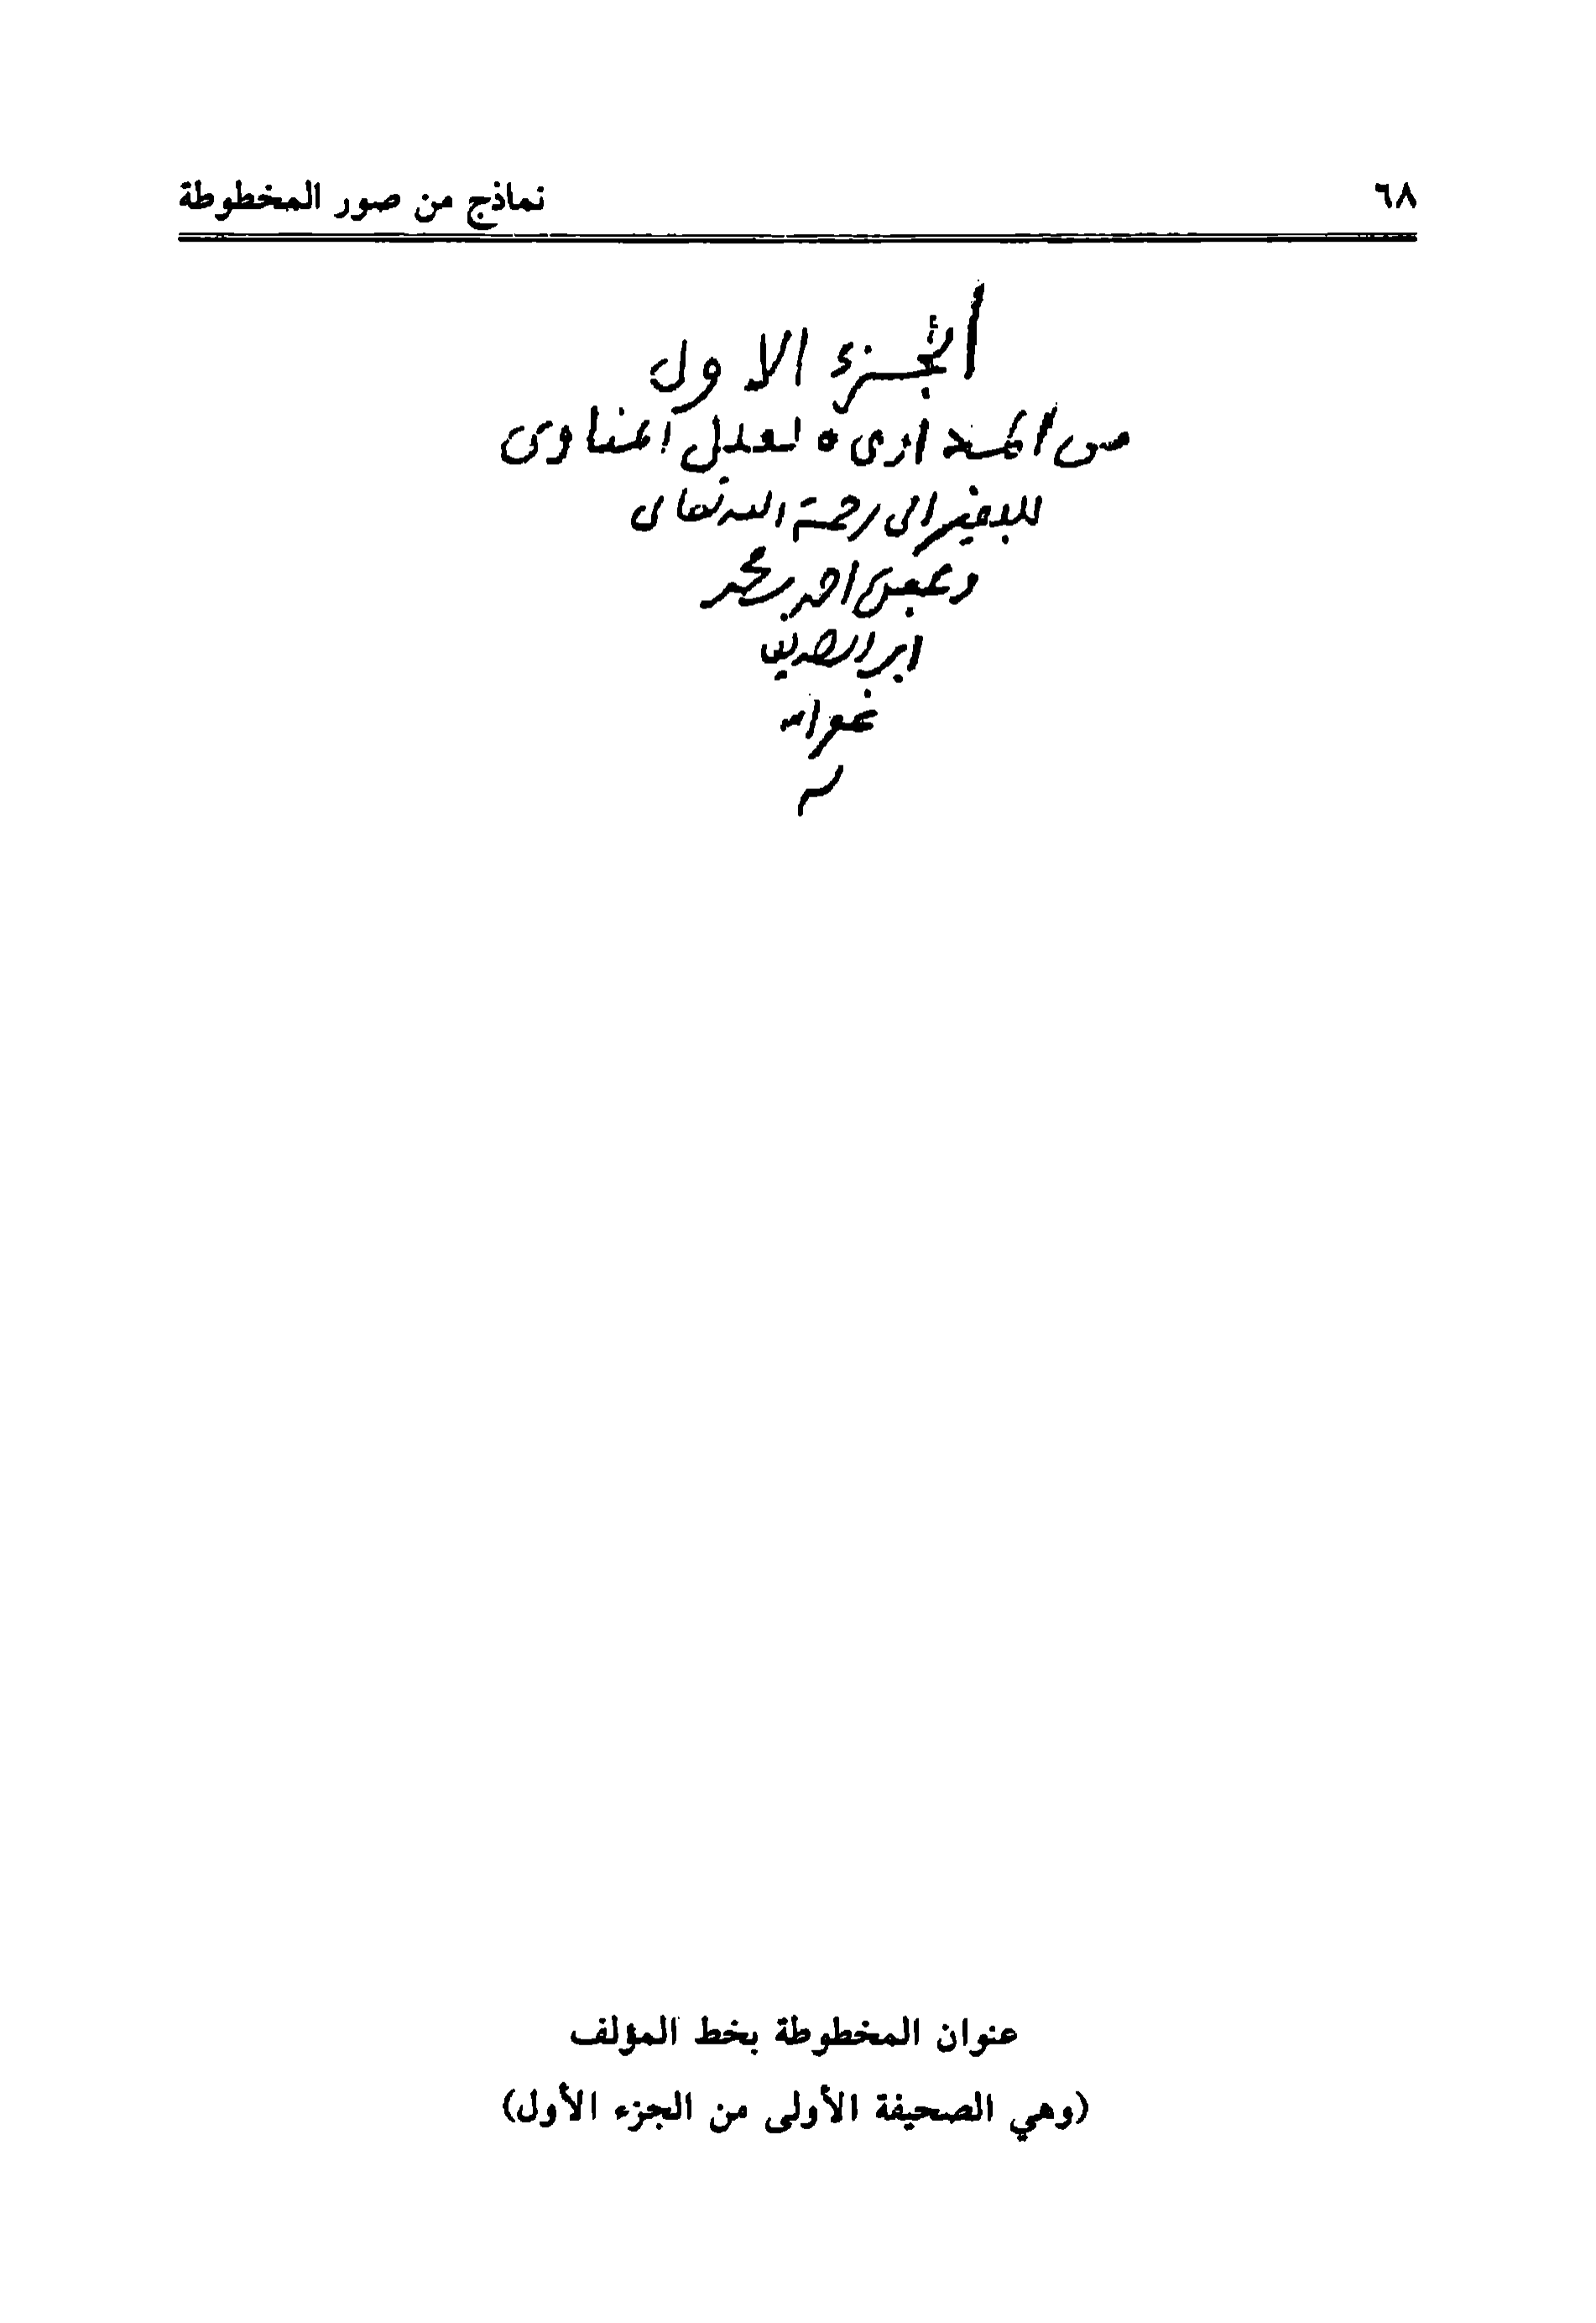 ٦٨ نماذج من صور المخطوطة
الجزء الاول
من المداوى لعلل المناوى
للفقير الى رحمة الله تعالى
احمد بن محمد
ابن الصديق
غفر الله
له
عنوان المخطوطة بخط المؤلف
(وهي الصحيفة الأولى من الجزء الأول)